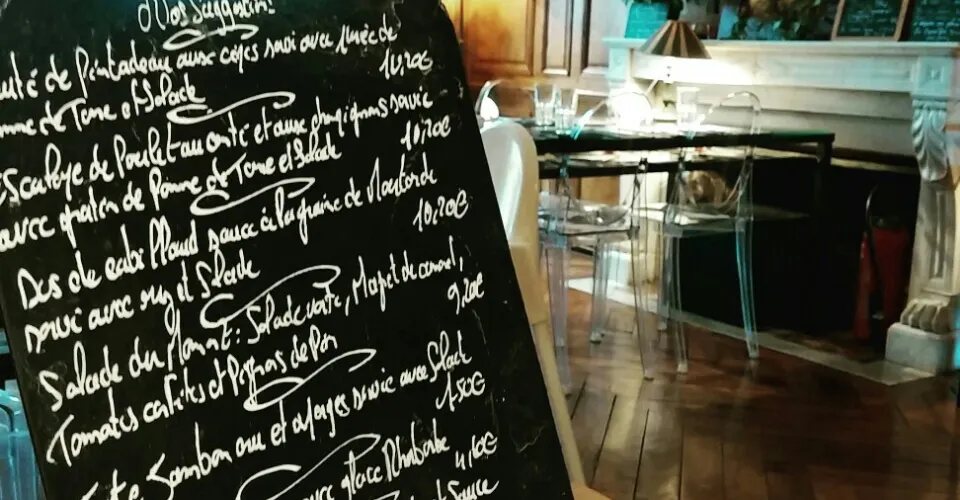 Nos Suggestions
de Pintadeau aux cèpes servi avec purée de
Pomme de Terre et Salade 10,20€
Escalope de Poulet au comté et aux champignons servie
avec gratin de Pomme de Terre et Salade 10,20€
Dos de cabillaud sauce à la graine de Moutarde
servi avec riz et Salade 10,20€
Salade du Moment : Salade verte, Magret de canard,
Tomates confites et Pignons de Pin 9,20€
Jambon cru et asperges servie avec Salade
7.50€
avec glace Rhubarbe
4,10€
et Sauce